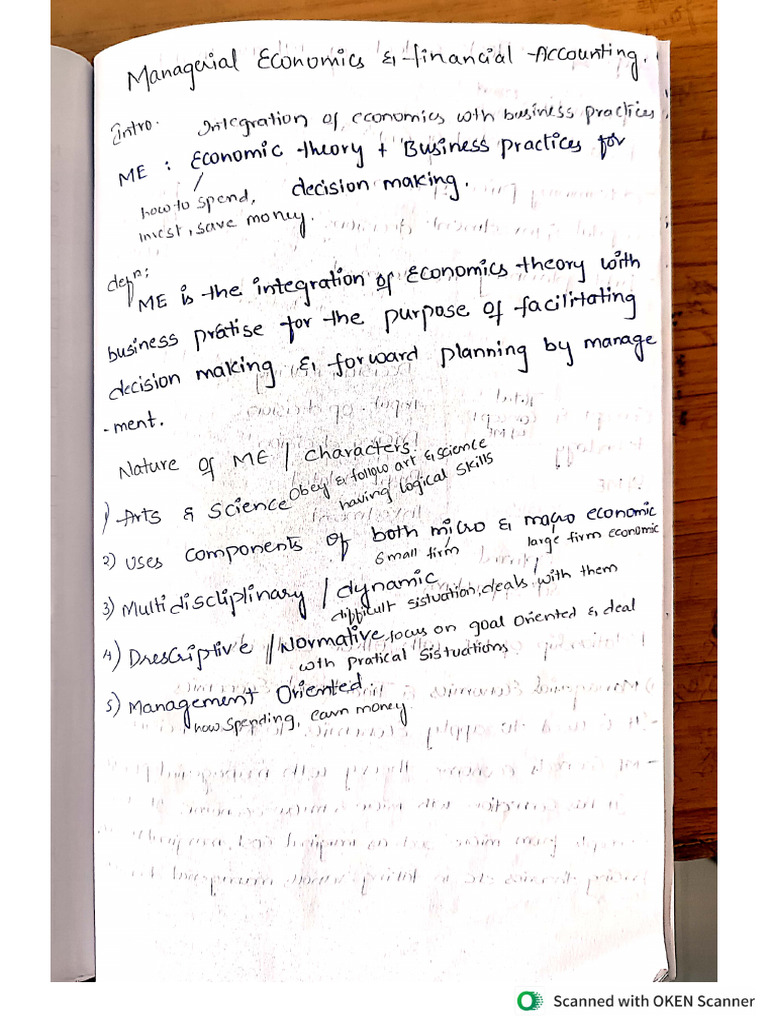 Managerial Economics & financial Accounting.
Intro. Integration of economics with business practices
ME : Economic theory + Business practices for
decision making.
how to spend,
invest, save money.
defn:
ME is the integration of Economics theory with
business pratise for the purpose of facilitating
decision making & forward planning by manage
- ment.
Nature of ME / characters.
1) Arts & Science Obey & follow art & science
having logical skills
2) Uses components of both micro & macro economic
small firm large firm economic
3) Multidiscliplinary / dynamic
difficult sistuation, deals with them
4) Drescriptive / Normative focus on goal oriented & deal
with pratical sistuations
5) Management Oriented.
how spending, earn money
Scanned with OKEN Scanner